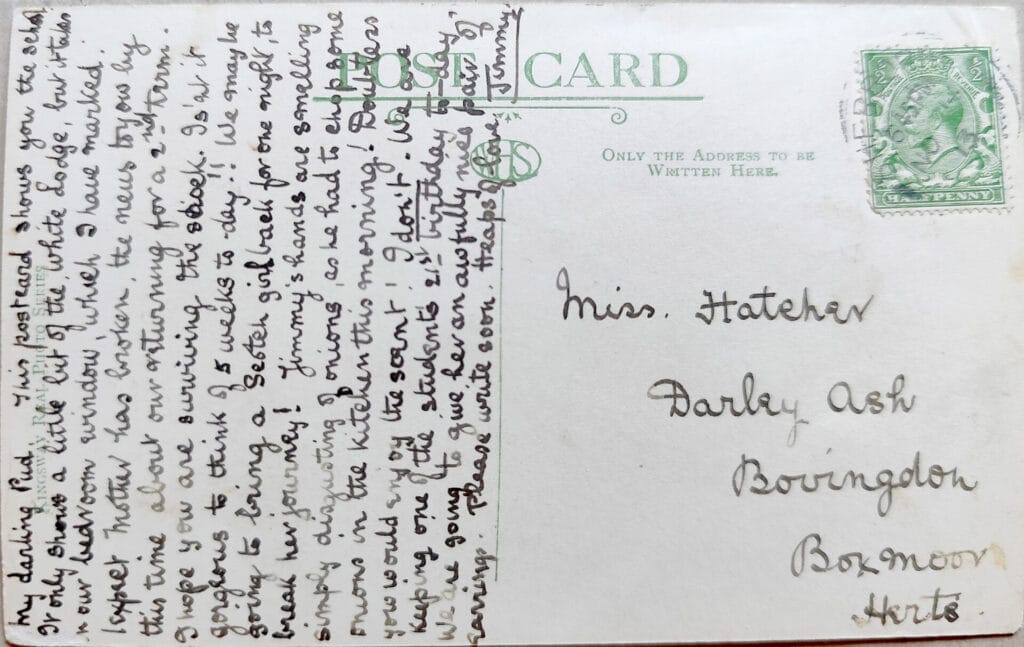 My darling Pud. This postcard shows you the school
It only shows a little bit of the White Lodge, but it takes
in our bedroom window which I have marked.
I expect Mother has broken the news to you by
this time about our returning for a 2nd term.
I hope you are surviving the shock. Is'nt it
gorgious to think of 5 weeks to-day!! We may be
going to bring a Scotch girl back for one night, to
break her journey! Jimmy's hands are smelling
simply disgusting of onions, as he had to chop some
onions in the kitchen this morning! Doubtless
you would enjoy the scent! I don't. We are
keeping one of the students 21st birthday to-day.
We are going to give her an awfully nice pair of
earrings. Please write soon. Heaps of love. Jimmy.
KINGSWAY REAL PHOTO SERIES
POST CARD
ONLY THE ADDRESS TO BE
WRITTEN HERE.
½ ½
HALFPENNY
Miss. Hatcher
Darley Ash
Bovingdon
Boxmoor
Herts.